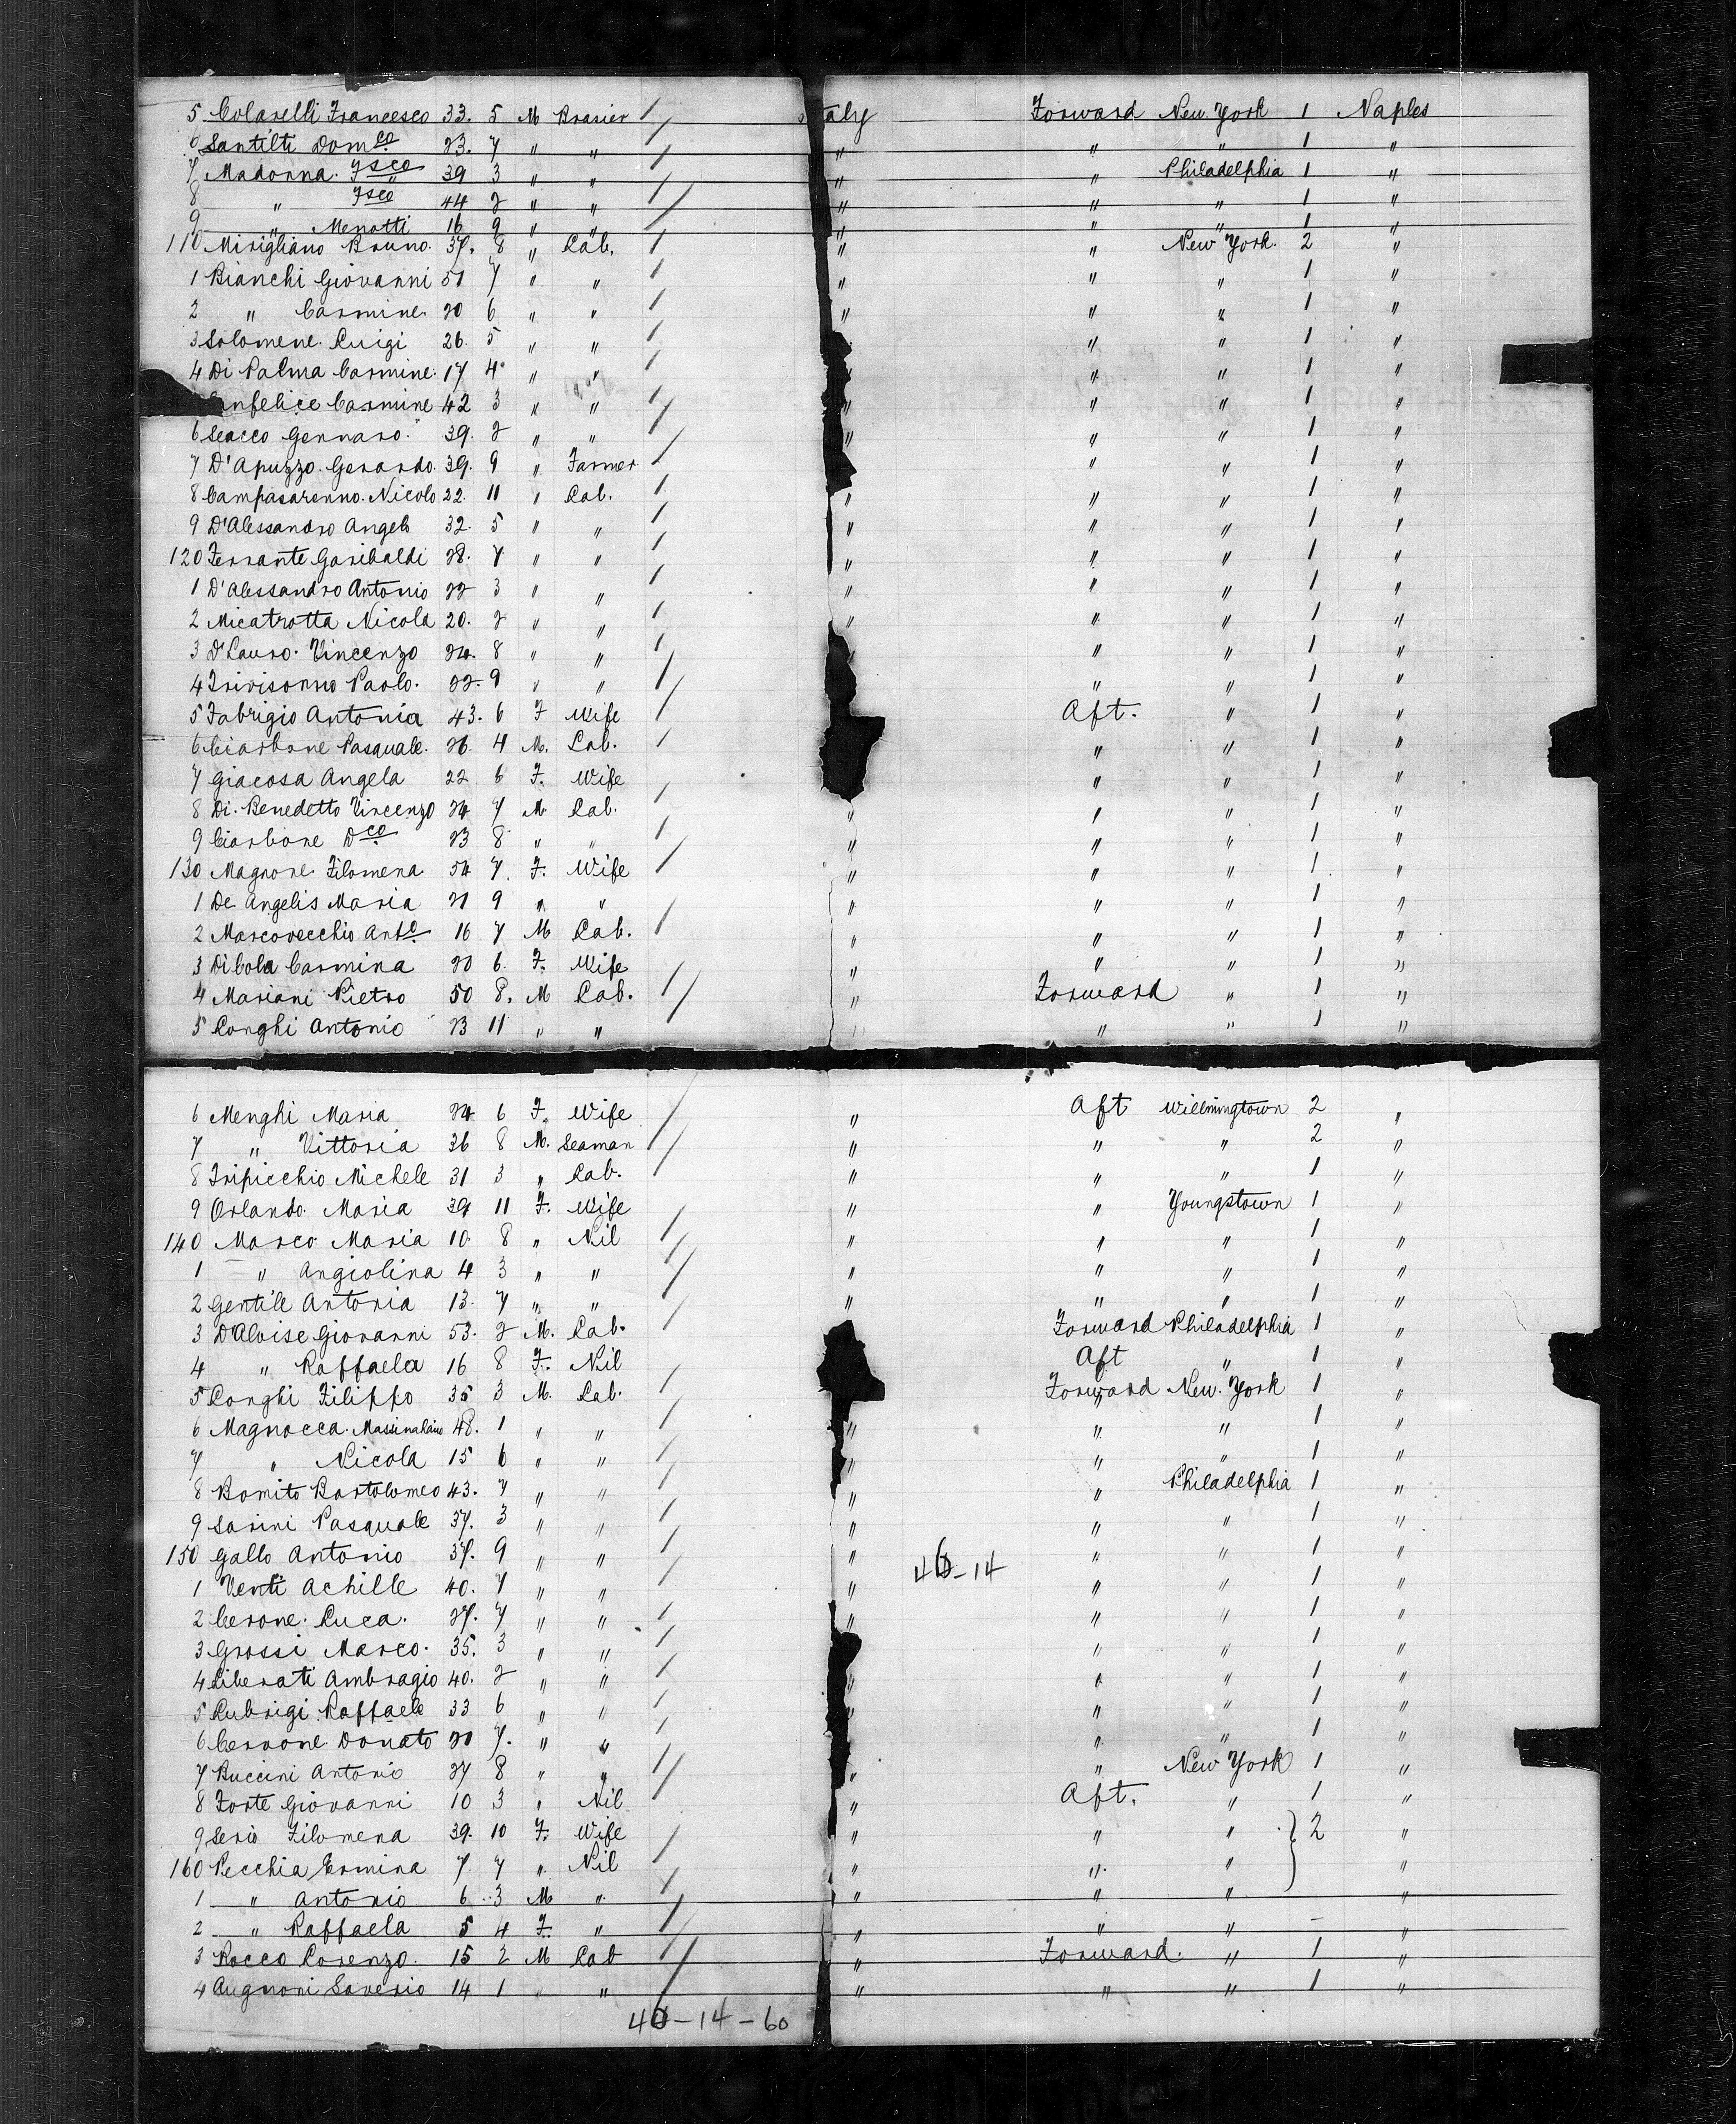 5 Colarelli Francesco 33. 5 M Brasier / Italy Forward New York 1 Naples
6 Santilti Dom co 23. 7 " " / " " " 1 "
7 Madonna. Fsco 39 3 " " / " " Philadelphia 1 "
8 " Fsco 44 2 " " / " " " 1 "
9 " Menotti 16 9 " " / " " " 1 "
110 Mirigliano Bruno. 37. 8 " Lab. / " " New York. 2 "
1 Bianchi Giovanni 51 7 " " / " " " 1 "
2 " Carmine 20 6 " " / " " " 1 "
3 Solomene. Luigi 26. 5 " " / " " 1 "
4 Di Palma Carmine. 17 4 " " / " " 1 "
anfelice Carmine 42 3 " " / " " " 1 "
6 Scacco Gennaro. 39. 2 " " / " " " 1 "
7 D'Apuzzo. Gerardo. 39. 9 " Farmer / " " 1 "
8 Campasarenno. Nicolo 22. 11 " Lab. / " " " 1 "
9 D'Alessandro Angelo 32. 5 " " / " " " 1 "
120 Ferrante Garibaldi 28. 7 " " / " " " 1 "
1 D'Alessandro Antonio 22 3 " " / " " " 1 "
2 Micatrotta Nicola 20. 2 " " / " " " 1 "
3 D'Lauro. Vincenzo 24. 8 " " / " " 1 "
4 Trivisonno Paolo. 22. 9 " " / " " 1 "
5 Fabrigio Antonia 43. 6 F Wife / Aft. " 1 "
6 Ciarbone Pasquale. 26. 4 M. Lab. / " " 1 "
7 Giacosa Angela 22 6 F. Wife " " 1 "
8 Di. Benedetto Vincenzo 24 7 M Lab. / " " " 1 "
9 Ciarbone Dco 23 8 " " / " " " 1 "
130 Magnore Filomena 54 7. F. Wife / " " " 1 "
1 De Angelis Maria 21 9 " " " " " 1 "
2 Marcovecchio Anto 16 7 M Lab. / " " " 1 "
3 DiCola Carmina 20 6. F. Wife " " " 1 "
4 Mariani Pietro 50 8. M Lab. / " Forward " 1 "
5 Longhi Antonio 23 11 " " / " " " 1 "
6 Menghi Maria 24 6 F. Wife / " Aft Willmingtown 2 "
7 " Vittoria 36 8 M. Seaman / " " " 2 "
8 Tripicchio Michele 31 3 " Lab. / " " " 1 "
9 Orlando Maria 39 11 F. Wife " " Youngstown 1 "
140 Marco Maria 10 8 " Nil / " " " 1 "
1 " Angiolina 4 3 " " / " " " 1 "
2 Gentile Antonia 13. 7 " " / " " " 1 "
3 D'Aloise Giovanni 53. 2 M. Lab. / Forward Philadelphia 1 "
4 " Raffaela 16 8 F. Nil Aft " 1 "
5 Longhi Filippo 35 3 M. Lab. / Forward New. York 1 "
6 Magnocca. Massimaliano 48. 1 " " / " " " 1 "
7 " Nicola 15 6 " " / " " 1 "
8 Bomito Bartolomeo 43. 7 " " / " " Philadelphia 1 "
9 Sarini Pasquale 37. 3 " " / " " " 1 "
150 Gallo Antonio 37. 9 " " / " " " 1 "
46-14
1 Venti Achille 40. 7 " " / " " " 1 "
2 Cerone. Luca. 27. 7 " " / " " " 1 "
3 Grossi Marco. 35. 3 " " / " " 1 "
4 Liberati Ambragio 40. 2 " " / " " " 1 "
5 Lubrigi Raffaele 33 6 " " / " " " 1 "
6 Cervone Donato 20 7. " " / " " " 1 "
7 Buccini Antonio 27 8 " " / " " New York 1 "
8 Forte Giovanni 10 3 " Nil / " Aft. " 1 "
9 Serio Filomena 39. 10 F. Wife " " " 2 "
160 Pecchia, Ermina 7. 7 " Nil / " " " "
1 " Antonio 6. 3 M " / " " " "
2 " Raffaela 5 4 F. " / " " " - "
3 Rocco Lorenzo. 15 2 M Lab / " Forward. " 1 "
4 Augnoni Saverio 14 1 " " / " " " 1 "
-14-60